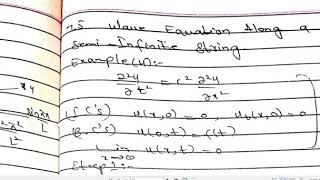 7.5 Wave Equation Along a
Semi-Infinite String
Example(4):-
∂²y/∂t² = c² ∂²y/∂x²
(I.C'S) u(x,0) = 0, u_t(x,0) = 0
(B.C'S) u(0,t) = f(t)
lim x→∞ u(x,t) = 0
Step 1:-
L
L²